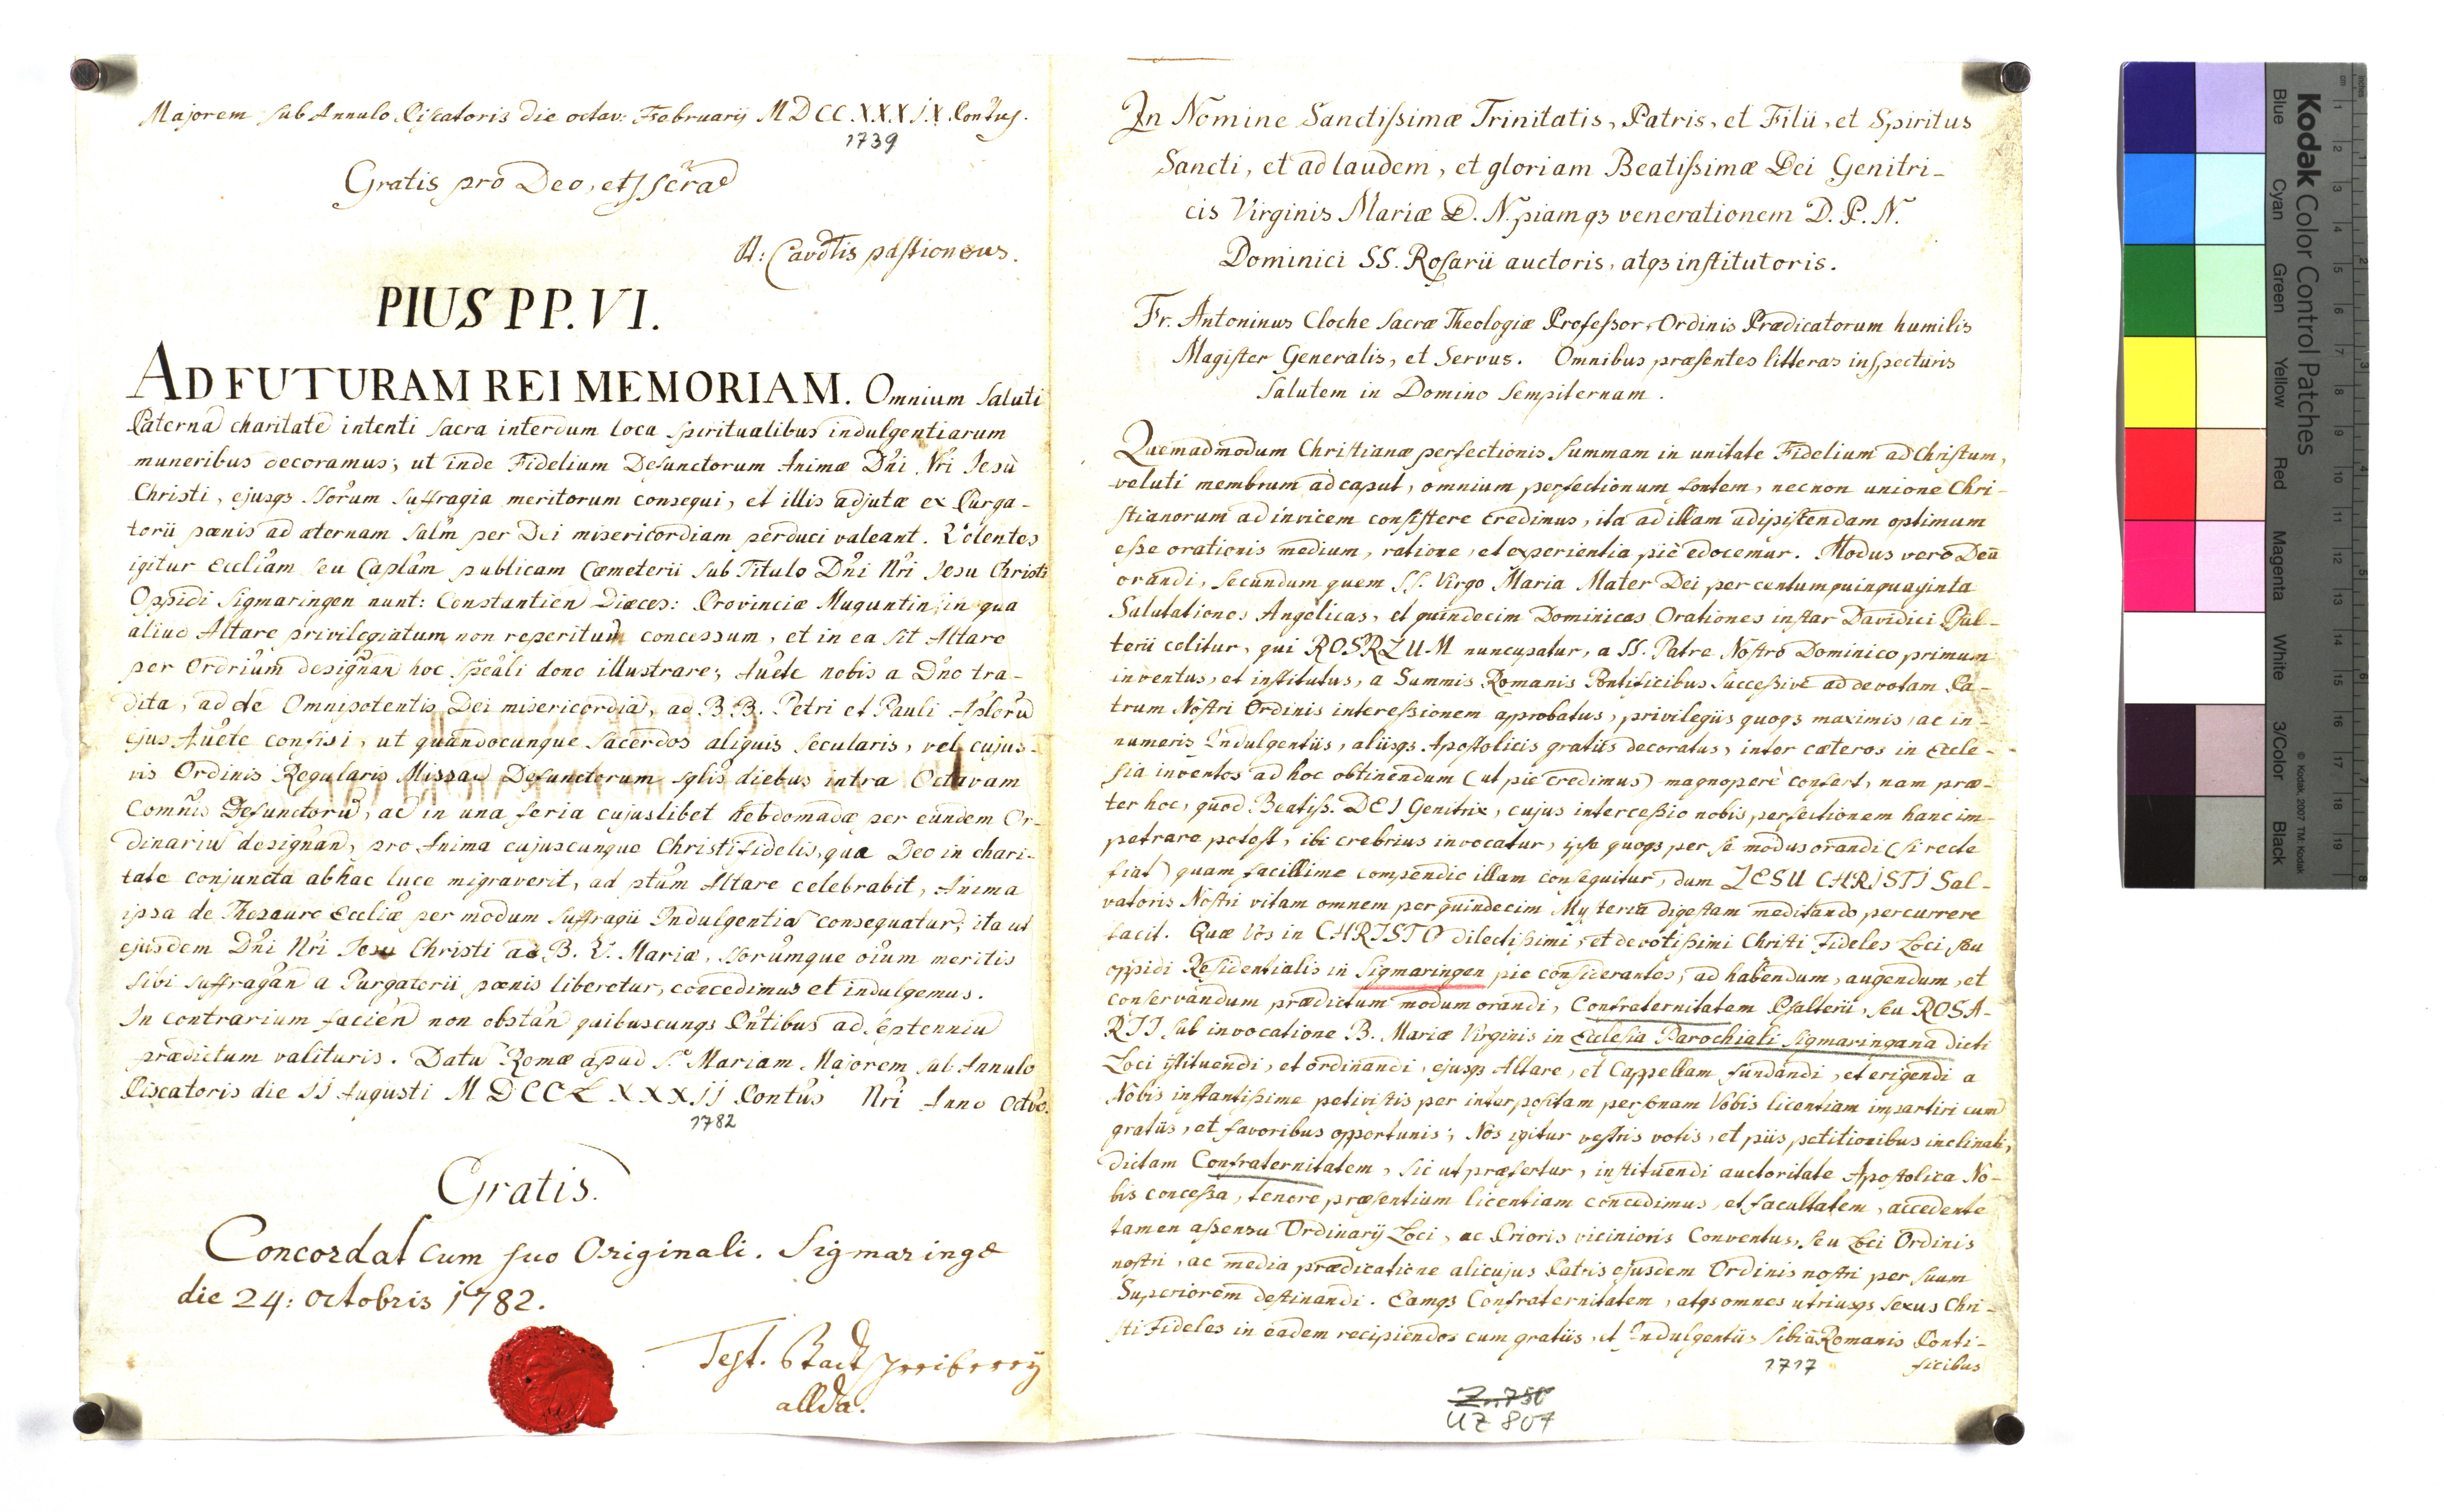 Majorem sub Annulo Piscatoris die octav: Februarij MDCCXXXIX Pontus.
1739
Gratis pro Deo, et scra
PIUS PP. VI.
AD FUTURAM REI MEMORIAM. Omnium saluti
Paterna charitate intenti sacra interdum loca spiritualibus indulgentiarum
muneribus decoramus; ut inde Fidelium Defunctorum Animæ Dñi Nři Jesu
Christi, ejusqз Sorum suffragia meritorum consequi, et illis adjutæ ex Purga-
torii pœnis ad æternam salm per Dei misericordiam perduci valeant. Volentes
igitur Eccliam seu Caplam publicam Cæmeterii sub Titulo Dñi Nři Jesu Christi
Oppidi Sigmaringen nunt: Constantien Diæces: Provinciæ Muguntin, in qua
aliud Altare privilegiatum non reperitum concessum, et in ea sit Altare
per Ordrium designan hoc speali dono illustrare; Aucte nobis a Dno tra-
dita, ac de Omnipotentis Dei misericordia, ac BB. Petri et Pauli Aplorũ
ejus Aucte confisi, ut quandocunque Sacerdos aliquis secularis, vel cujus-
vis Ordinis Regularis Missas Defunctorum sglis diebus intra Octavam
Comnis Defunctorũ, ac in una feria cujuslibet hebdomadæ per eundem Or-
dinariũ designand, pro Anima cujuscunque Christifidelis, qua Deo in chari-
tate conjuncta ab hac luce migraverit, ad ptum Altare celebrabit, Anima
ipsa de Thesauro Eccliæ per modum suffragii Indulgentia consequatur; ita ut
ejusdem Dñi Nři Jesu Christi ac B. V. Mariæ, Sorumque oium meritis
sibi suffragan a Purgatorii pœnis liberetur, concedimus et indulgemus.
In contrarium facien non obstan quibuscunqз Pntibus ad septenniũ
prædictum valituris. Datũ Romæ apud S. Mariam Majorem sub Annulo
Piscatoris die II Augusti MDCCLXXXII Pontus Nři Anno Octvo.
1782
Gratis.
Concordat cum suo Originali. Sigmaringæ
die 24: Octobris 1782.
Test. Stadtschreiberey
allda.
In Nomine Sanctissimæ Trinitatis, Patris, et Filii, et Spiritus
Sancti, et ad laudem, et gloriam Beatissimæ Dei Genitri-
cis Virginis Mariæ D. N. piamqз venerationem D. P. N.
Dominici SS. Rosarii auctoris, atqз institutoris.
Fr. Antoninus Cloche Sacræ Theologiæ Professor, Ordinis Prædicatorum humilis
Magister Generalis, et Servus. Omnibus præsentes litteras inspecturis
Salutem in Domino Sempiternam.
Quemadmodum Christianæ perfectionis Summam in unitate Fidelium ad Christum,
veluti membrum ad caput, omnium perfectionum fontem, necnon unione Chri-
stianorum ad invicem consistere credimus, ita ad illam adipistendam optimum
esse orationis medium, ratione, et experientia piè edocemur. Modus verò Deũ
orandi, secundum quem SS. Virgo Maria Mater Dei per centum quinquaginta
Salutationes Angelicas, et quindecim Dominicas Orationes instar Davidici Psal-
terii colitur, qui ROSRZUM nuncupatur, a SS. Patre Nostro Dominico primum
inventus, et institutus, a Summis Romanis Pontificibus successivè ad devotam Pa-
trum Nostri Ordinis intercessionem approbatus, privilegiis quoqз maximis, ac in-
numeris Indulgentiis, aliisqз Apostolicis gratiis decoratus, inter cæteros in Eccle-
sia inventos ad hoc obtinendum (ut piè credimus) magnoperè confert, nam præ-
ter hoc, quod Beatiss. DEI Genitrix, cujus intercessio nobis perfectionem hanc im-
petrare potest, ibi crebrius invocatur, ipse quoqз per se modus orandi (si recte
fiat) quam facillime compendio illam consequitur, dum JESU CHRISTI Sal-
vatoris Nostri vitam omnem per quindecim Mysteria digestam meditando percurrere
facit. Quæ Vos in CHRISTO dilectissimi, et devotissimi Christi Fideles Loci seu
oppidi Residentialis in Sigmaringen pie considerantes, ad habendum, augendum, et
conservandum prædictum modum orandi, Confraternitatem Psalterii, seu ROSA-
RII sub invocatione B. Mariæ Virginis in Ecclesia Parochiali Sigmaringana dicti
Loci istituendi, et ordinandi, ejusqз Altare, et Cappellam fundandi, et erigendi a
Nobis instantissime petivistis per interpositam personam Vobis licentiam impartiri cum
gratiis, et favoribus opportunis; Nos igitur vestris votis, et piis petitionibus inclinati,
dictam Confraternitatem, sic ut præfertur, instituendi auctoritate Apostolica No-
bis concessa, tenore præsentium licentiam concedimus, et facultatem, accedente
tamen assensu Ordinarij Loci, ac Prioris vicinioris Conventus, seu Loci Ordinis
nostri, ac media prædicatione alicujus Patris ejusdem Ordinis nostri per suum
Superiorem destinandi. Eamqз Confraternitatem, atqз omnes utriusqз sexus Chri-
sti Fideles in eadem recipiendos cum gratiis, et Indulgentiis sibi à Romanis Ponti-
ficibus
1717
Z. 750
UZ 807
Kodak Color Control Patches
Blue Cyan Green Yellow Red Magenta White 3/Color Black
© Kodak, 2007 TM: Kodak
cm 1 2 3 4 5 6 7 8 9 10 11 12 13 14 15 16 17 18 19
inches 1 2 3 4 5 6 7 8